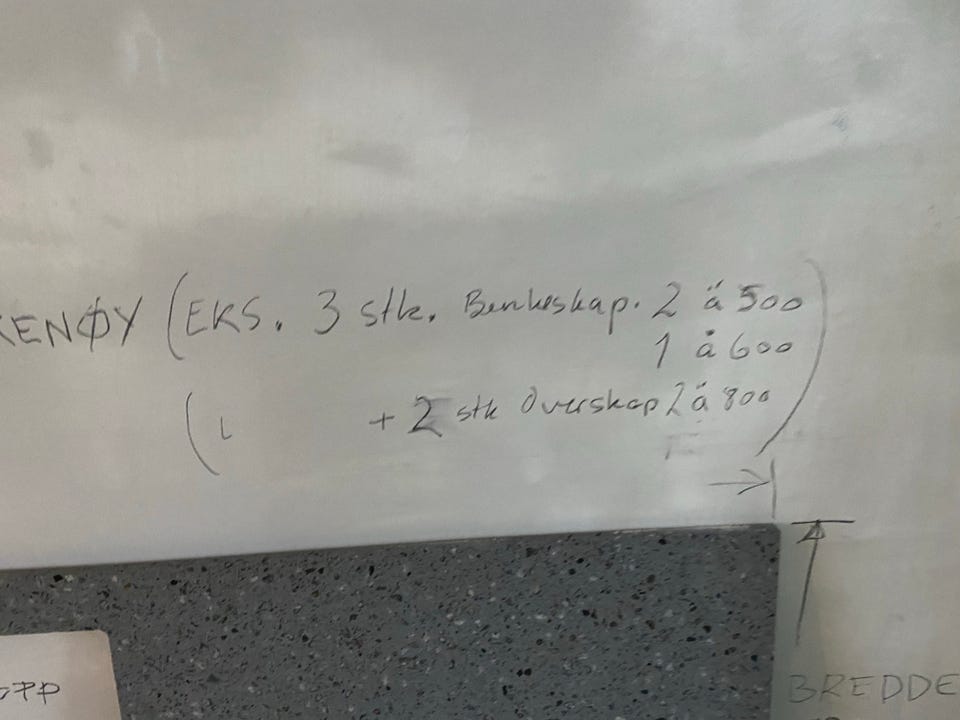 KENØY (EKS. 3 stk. Benkeskap. 2 à 500
1 å 600
+ 2 stk Overskap 2 à 800)
BREDDE